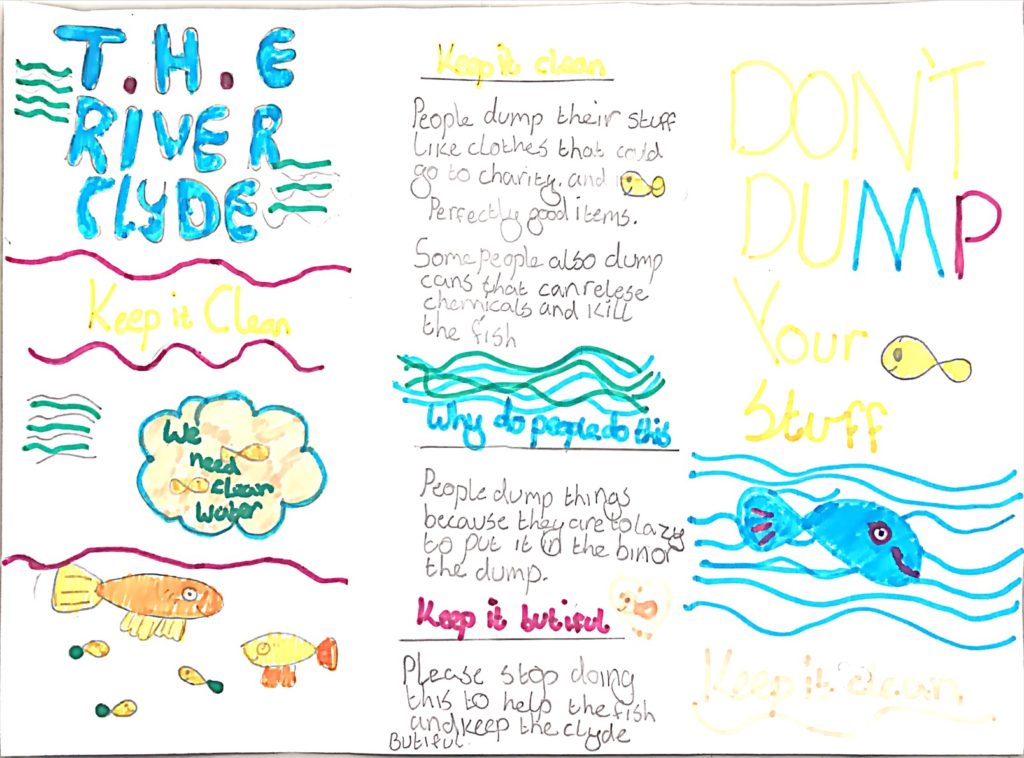 T.H.E
RIVER
CLYDE
Keep it Clean
We
need
clean
water
Keep it clean
People dump their stuff
like clothes that could
go to charity. and
Perfectly good items.
Some people also dump
cans that can relese
chemicals and kill
the fish
Why do people do this
People dump things
because they are to lazy
to put it in the bin or
the dump.
Keep it butiful
Please stop doing
this to help the fish
and keep the clyde
Butiful.
DON'T
DUMP
Your
Stuff
Keep it clean